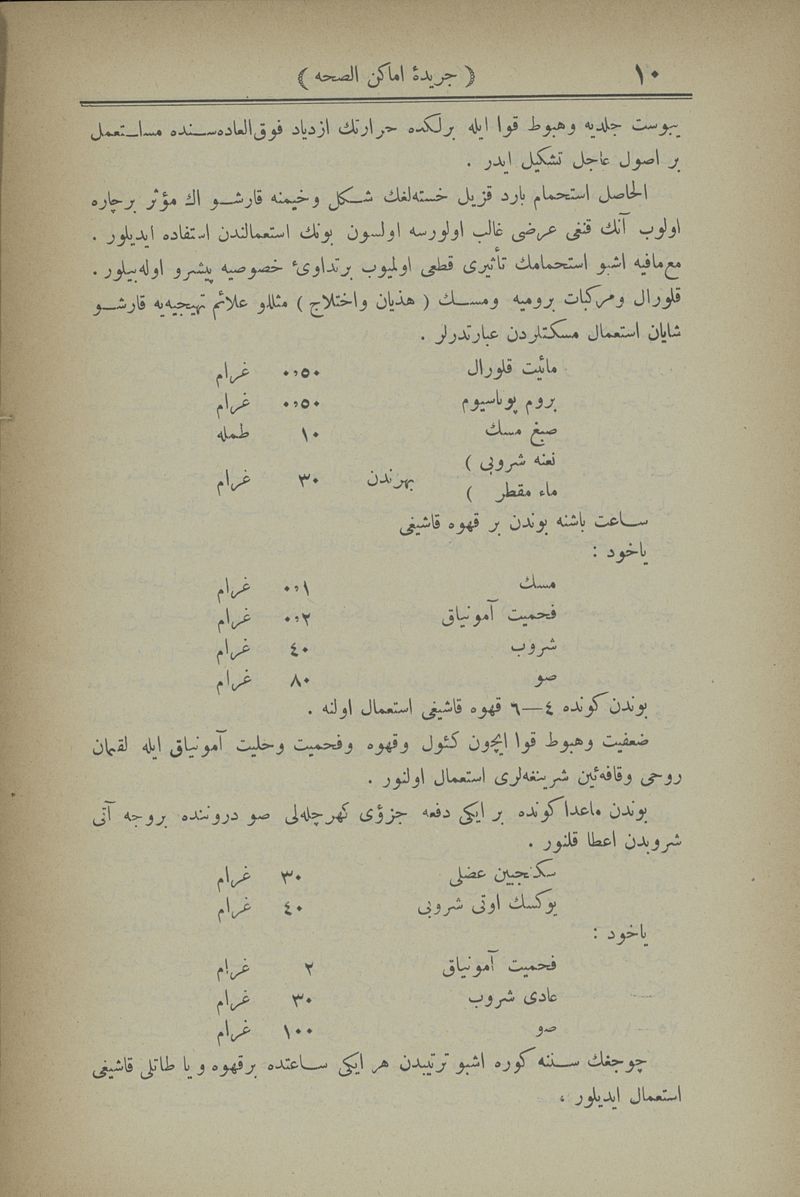 ﴿ جريدهٔ اماكن الصحه ﴾ ١٠
يبوست جلديه وهبوط قوا ايله برلكده حرارتك ازدياد فوق‌العاده‌سنده مستعمل
بر اصول عاجل تشكيل ايدر .
الحاصل استحمام بارد قزيل خسته‌لغك شكل وخيمنه قارشو اك مؤثر برچاره
اولوب آنك قنغى عرضى غالب اولورسه اولسون بونك استعمالندن استفاده ايديلور .
مع‌مافيه اشبو استحمامك تأثيرى قطعى اولميوب برتداوىٔ خصوصيه پيشرو اوله‌بيلور .
قلورال ومركبات بروميه ومسك ( هذيان واختلاج ) مثللو علائم تهيجيه‌يه قارشو
شايان استعمال مسكنلردن عبارتدرلر .
مائيت قلورال ٠,٥٠ غرام
بروم پوتاسيوم ٠,٥٠ غرام
صبغ مسك ١٠ طمله
نعنه شروبى )
ماء مقطر ) بهرندن ٣٠ غرام
ساعت باشنه بوندن بر قهوه قاشيغى
ياخود :
مسك ٠,١ غرام
فحميت آمونياق ٠,٢ غرام
شروب ٤٠ غرام
صو ٨٠ غرام
بوندن كونده ٤—٦ قهوه قاشيغى استعمال اولنه .
ضعفيت وهبوط قوا ايچون كئول وقهوه وفحميت وخليت آمونياق ايله لقمان
روحى وقافه‌ئين شرينغه‌لرى استعمال اولنور .
بوندن ماعدا كونده بر ايكى دفعه جزؤى كهرچله‌لى صو دروننده بروجه آتى
شروبدن اعطا قلنور .
سكنجبين عضلى ٣٠ غرام
يوكسك اوتى شروبى ٤٠ غرام
ياخود :
فحميت آمونياق ٢ غرام
عادى شروب ٣٠ غرام
صو ١٠٠ غرام
چوجغك سننه كوره اشبو ترتيبدن هر ايكى ساعتده برقهوه ويا طاتلى قاشيغى
استعمال ايديلور ،